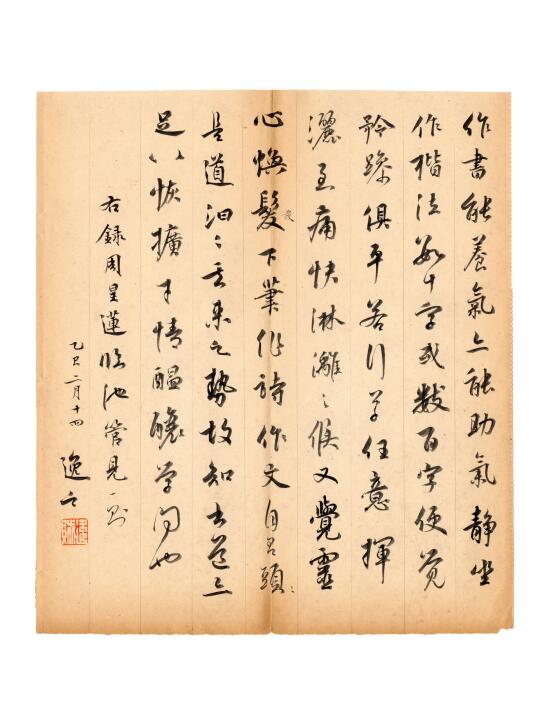 作書能養氣亦能助氣靜坐
作楷法數十字或數百字便覺
矜躁俱平若行草任意揮
灑至痛快淋灕之候又覺靈
心煥髮發下筆作詩作文自有頭〻
是道汩〻其來之勢故知書道亦
足以恢擴才情醞釀學問也
右録周星蓮臨池管見一則
乙巳二月十四 逸之